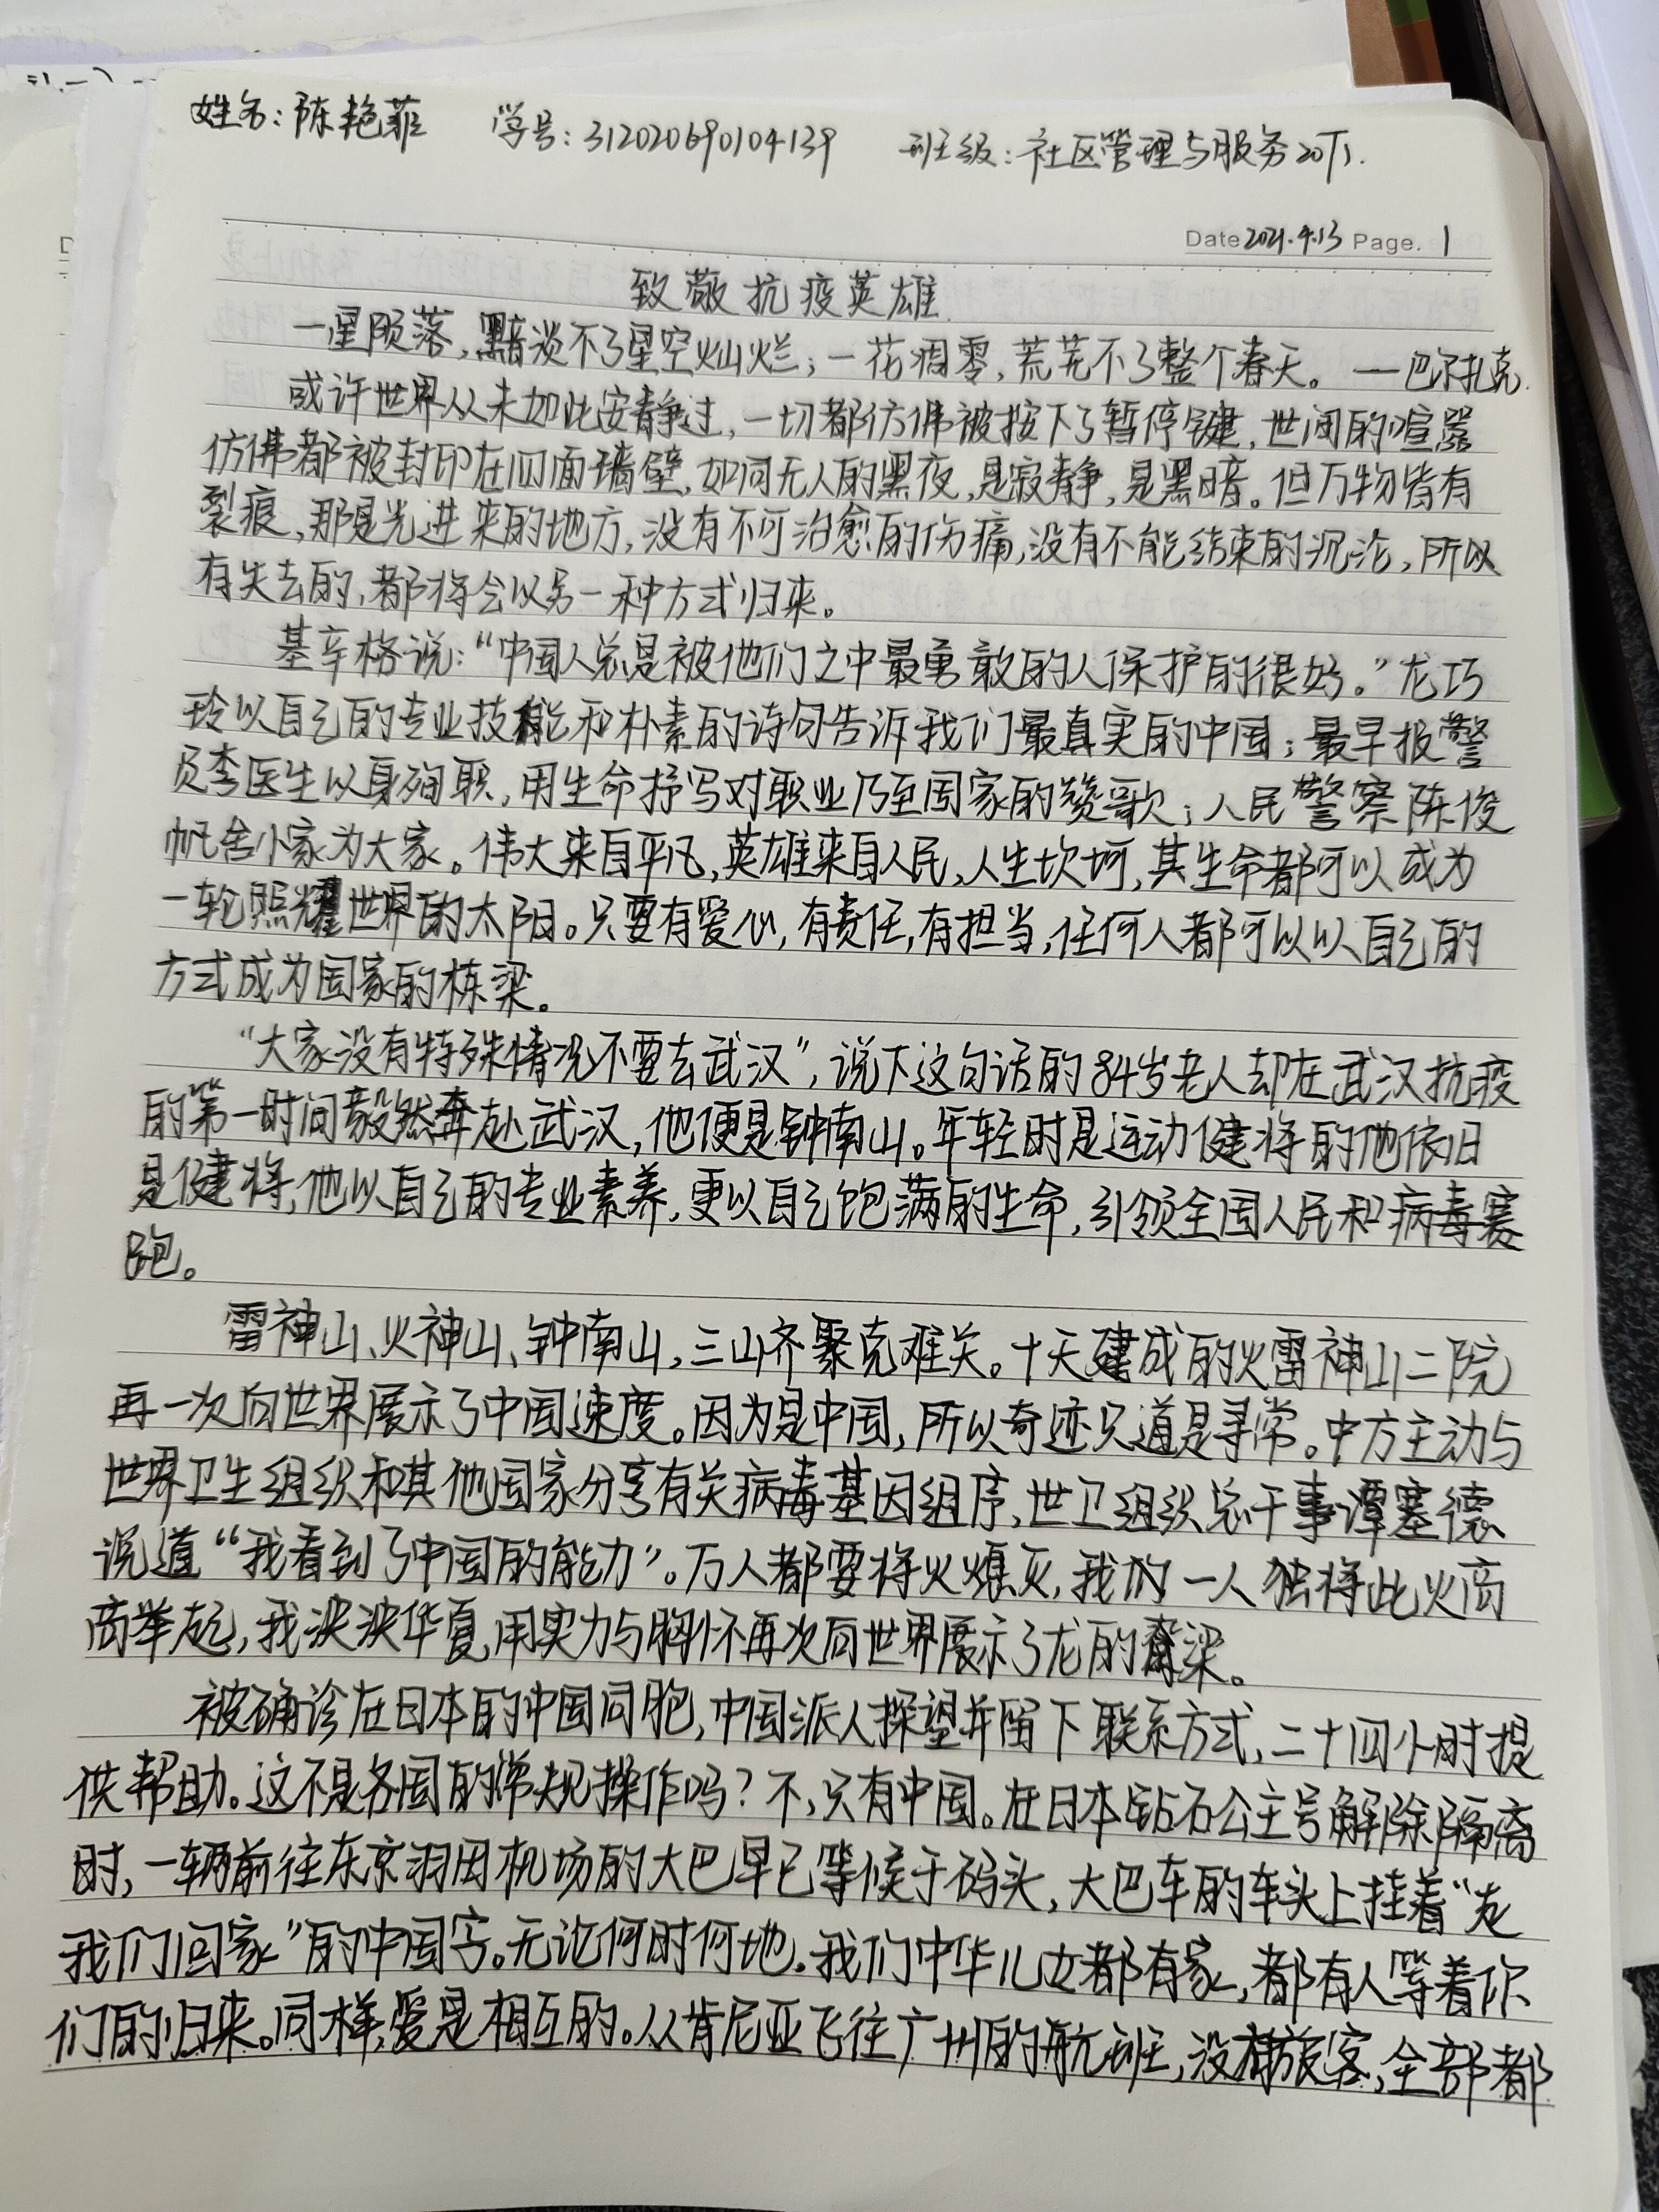 姓名：陈艳菲 学号：312020690104139 班级：社区管理与服务20下1.
Date 2021.4.13 Page. 1
致敬抗疫英雄
一星陨落，黯淡不了星空灿烂；一花凋零，荒芜不了整个春天。——巴尔扎克
或许世界从未如此安静过，一切都仿佛被按下了暂停键，世间的喧嚣
仿佛都被封印在四面墙壁，如同无人的黑夜，是寂静，是黑暗。但万物皆有
裂痕，那是光进来的地方，没有不可治愈的伤痛，没有不能结束的沉沦，所以
有失去的，都将会以另一种方式归来。
基辛格说：“中国人总是被他们之中最勇敢的人保护的很好。”龙巧
玲以自己的专业技能和朴素的诗句告诉我们最真实的中国；最早报警
员李医生以身殉职，用生命抒写对职业乃至国家的赞歌；人民警察陈俊
帆舍小家为大家。伟大来自平凡，英雄来自人民，人生坎坷，其生命都可以成为
一轮照耀世界的太阳。只要有爱心，有责任，有担当，任何人都可以以自己的
方式成为国家的栋梁。
“大家没有特殊情况不要去武汉”，说下这句话的84岁老人却在武汉抗疫
的第一时间毅然奔赴武汉，他便是钟南山。年轻时是运动健将的他依旧
是健将，他以自己的专业素养，更以自己饱满的生命，引领全国人民和病毒赛
跑。
雷神山、火神山、钟南山，三山齐聚克难关。十天建成的火雷神山二院
再一次向世界展示了中国速度。因为是中国，所以奇迹只道是寻常。中方主动与
世界卫生组织和其他国家分享有关病毒基因组序，世卫组织总干事谭塞德
说道“我看到了中国的能力”。万人都要将火熄灭，我们一人独将此火高
高举起，我泱泱华夏，用实力与胸怀再次向世界展示了龙的脊梁。
被确诊在日本的中国同胞，中国派人探望并留下联系方式，二十四小时提
供帮助。这不是各国的常规操作吗？不，只有中国。在日本钻石公主号解除隔离
时，一辆前往东京羽田机场的大巴早已等候于码头，大巴车的车头上挂着“走
我们回家”的中国字。无论何时何地，我们中华儿女都有家，都有人等着你
们的归来。同样，爱是相互的。从肯尼亚飞往广州的航班，没有旅客，全部都